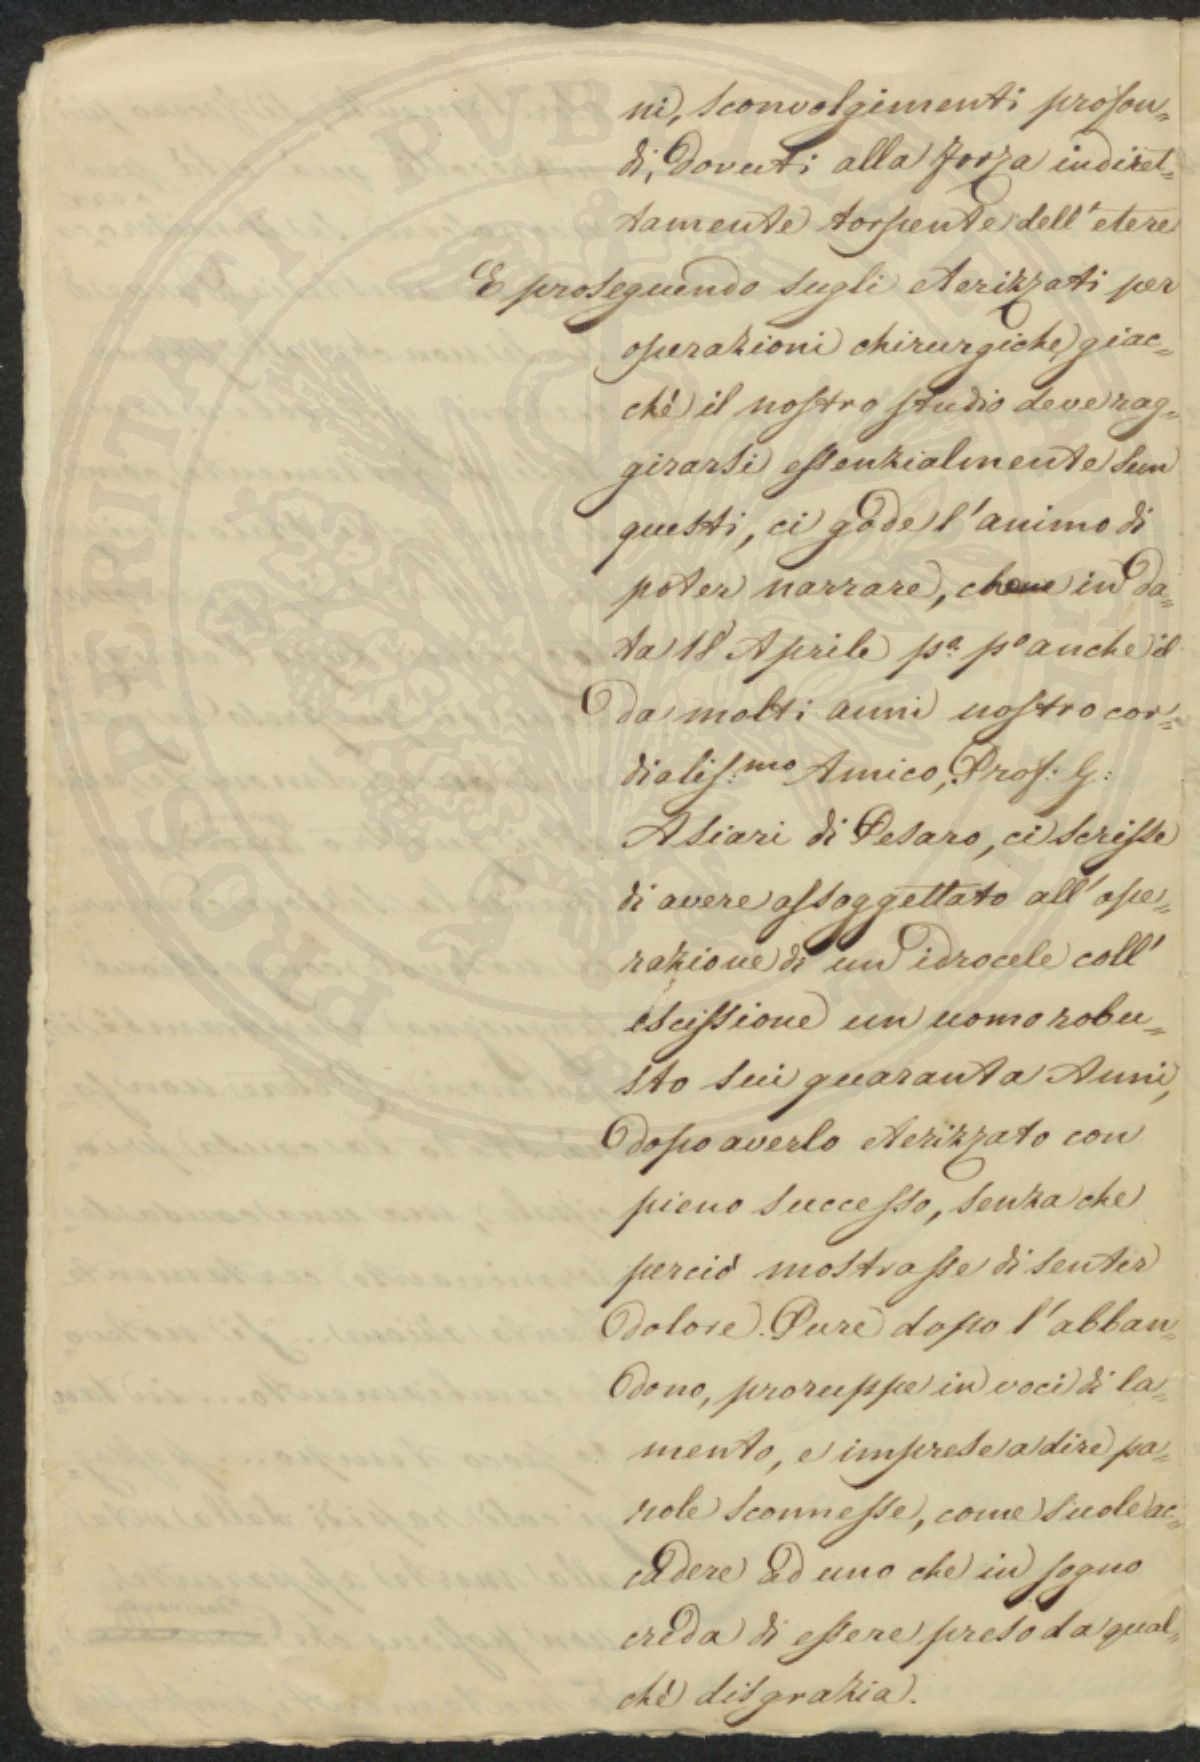 ni, sconvolgimenti profon=
di, dovuti alla forza indiret=
tamente torpente dell'etere
E proseguendo sugli eterizzati per
operazioni chirurgiche, giac=
chè il nostro studio deve rag=
girarsi essenzialmente sun
questi, ci gode l'animo di
poter narrare, che in da=
ta 18 Aprile p.º p.º anche il
da molti anni nostro cor=
dialis:mo Amico, Prof: G:
Asiari di Pesaro, ci scrisse
di avere assoggettato all'ope=
razione di un idrocele coll'
escissione un uomo robu=
sto sui quaranta Anni,
dopo averlo eterizzato con
pieno successo, senza che
perciò mostrasse di senter
dolore. Pure dopo l'abban=
dono, proruppe in voci di la=
mento, e imprese a dire pa=
role sconnesse, come suole ac=
cadere ad uno che in sogno
creda di essere preso da qual=
chè disgrazia.
PROSPERITATI PVBLICAE